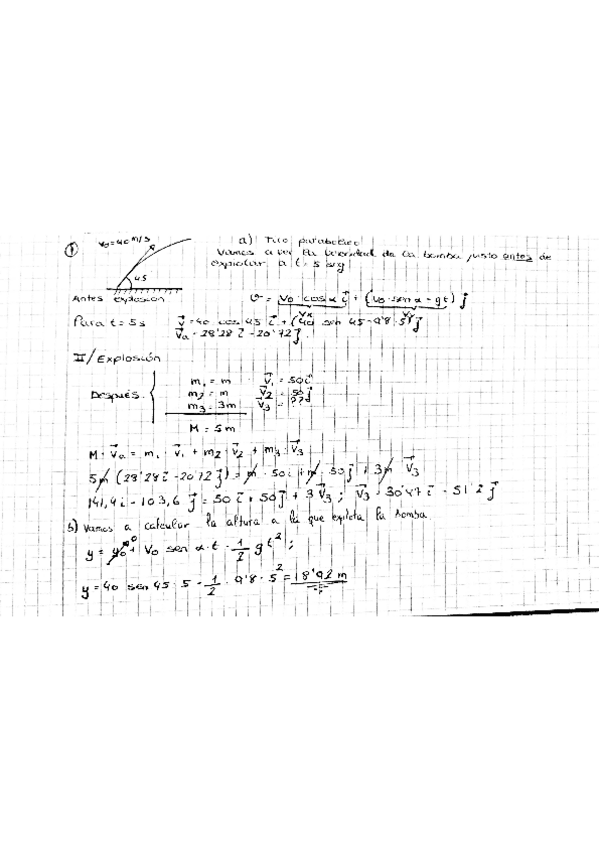 ① v₀=40 m/s
45
a) Tiro parabólico
Vamos a ver la velocidad de la bomba justo antes de
explotar a t=5 seg
Antes explosión v = v₀·cos α i + (v₀·sen α - gt) j
Vx Vy
Para t=5s v=40 cos 45 i + (40 sen 45 - 9'8·5) j
Va = 28'28 i - 20'72 j
II/ Explosión
Después.
m₁ = m V₁ = 50 i
m₂ = m V₂ = 50 j
m₃ = 3m V₃ = ??
M = 5m
M·Va = m₁·V₁ + m₂·V₂ + m₃·V₃
5m (28'28 i - 20'72 j) = m·50 i + m·50 j + 3m V₃
141,4 i - 103,6 j = 50 i + 50 j + 3 V₃ ; V₃ = 30'47 i - 51'2 j
b) Vamos a calcular la altura a la que explota la bomba
y = y₀ + v₀ sen α·t - 1/2 g t² ;
y = 40 sen 45·5 - 1/2 · 9'8·5² = 18'92 m